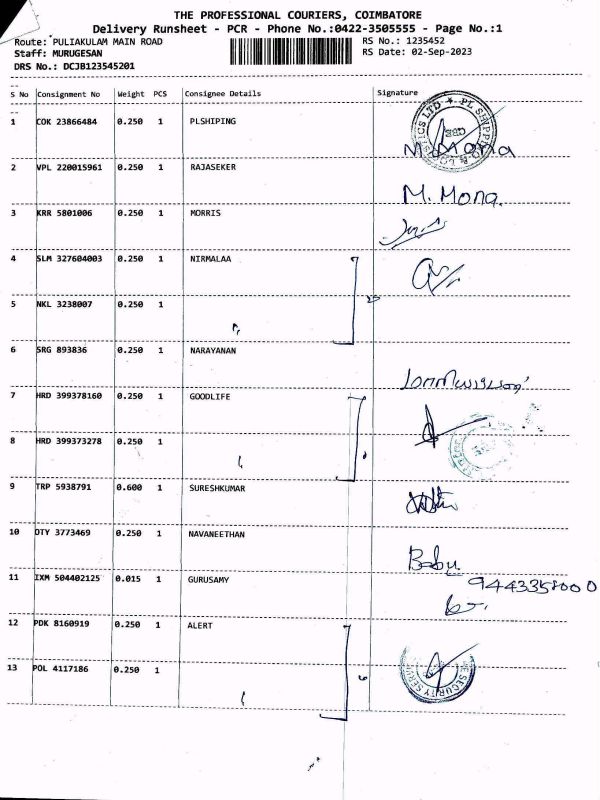 THE PROFESSIONAL COURIERS, COIMBATORE
Delivery Runsheet - PCR - Phone No.:0422-3505555 - Page No.:1
Route: PULIAKULAM MAIN ROAD RS No.: 1235452
Staff: MURUGESAN RS Date: 02-Sep-2023
DRS No.: DCJB123545201
S No Consignment No Weight PCS Consignee Details Signature
1 COK 23866484 0.250 1 PLSHIPING
M. Mona
2 VPL 220015961 0.250 1 RAJASEKER
M. Mona.
3 KRR 5801006 0.250 1 MORRIS
4 SLM 327604003 0.250 1 NIRMALAA
5 NKL 3238007 0.250 1
6 SRG 893836 0.250 1 NARAYANAN
7 HRD 399378160 0.250 1 GOODLIFE
8 HRD 399373278 0.250 1
9 TRP 5938791 0.600 1 SURESHKUMAR
10 OTY 3773469 0.250 1 NAVANEETHAN
Babu
11 IXM 504402125 0.015 1 GURUSAMY
9443358000
12 PDK 8160919 0.250 1 ALERT
13 POL 4117186 0.250 1